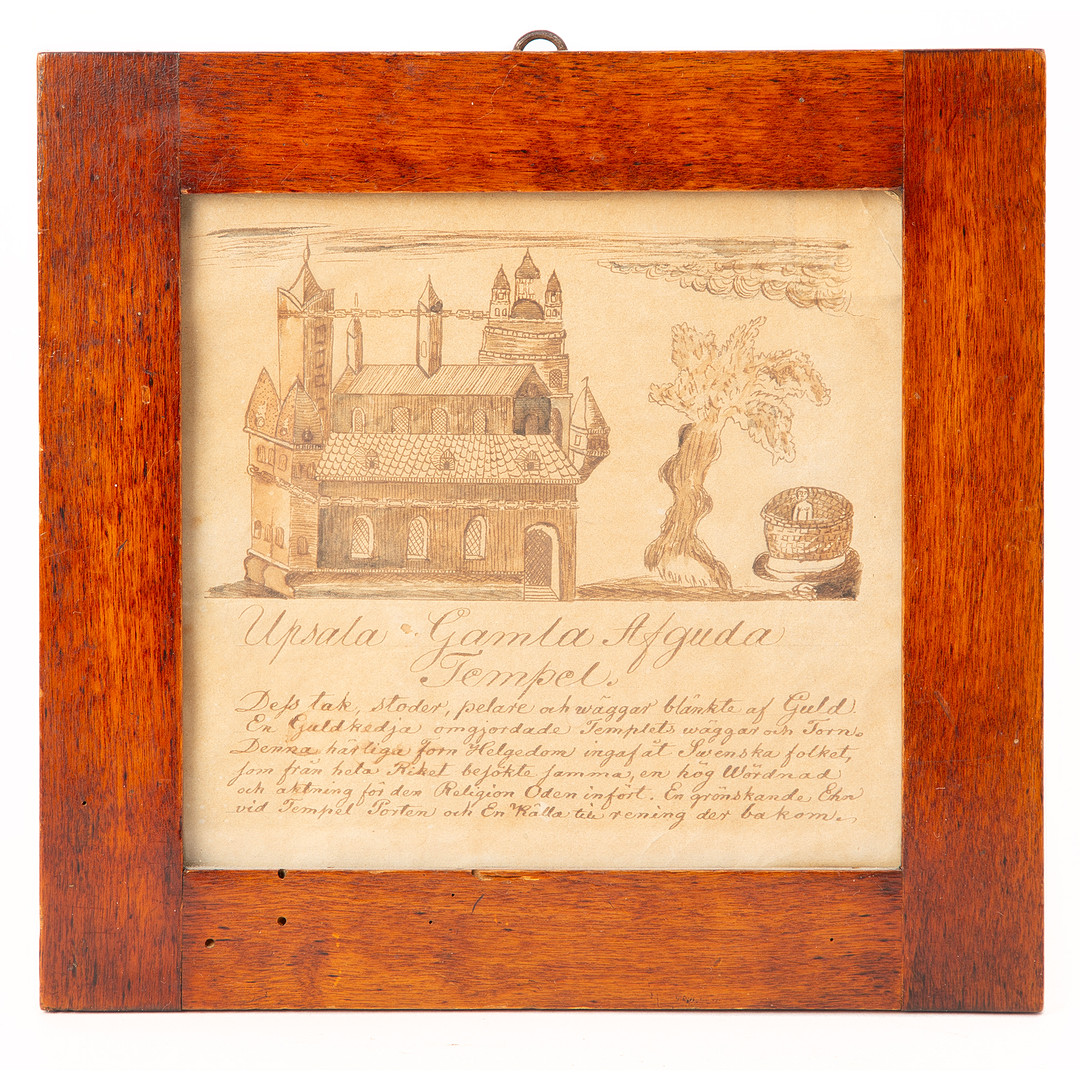 Upsala Gamla Afguda
Tempel.
Dess tak, stoder, pelare och wäggar blänkte af Guld
En Guldkedja omgjordade Templets wäggar och Torn.
Denna härliga forn Helgedom ingaf åt Swenska folket,
som från hela Riket besökte samma, en hög Wördnad
och aktning för den Religion Oden infört. En grönskande
vid Tempel Porten och En Källa till rening der bakom.